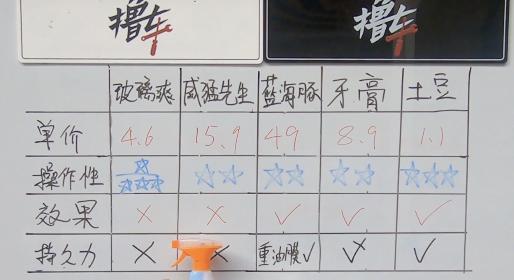 撸车
撸车
玻璃爽 威猛先生 蓝海豚 牙膏 土豆
单价 4.6 15.9 49 8.9 1.1
操作性 ☆☆☆☆ ☆☆ ☆☆ ☆☆ ☆☆☆
效果 × × ✓ ✓ ✓
持久力 × × 重油膜✓ ✓ ✓